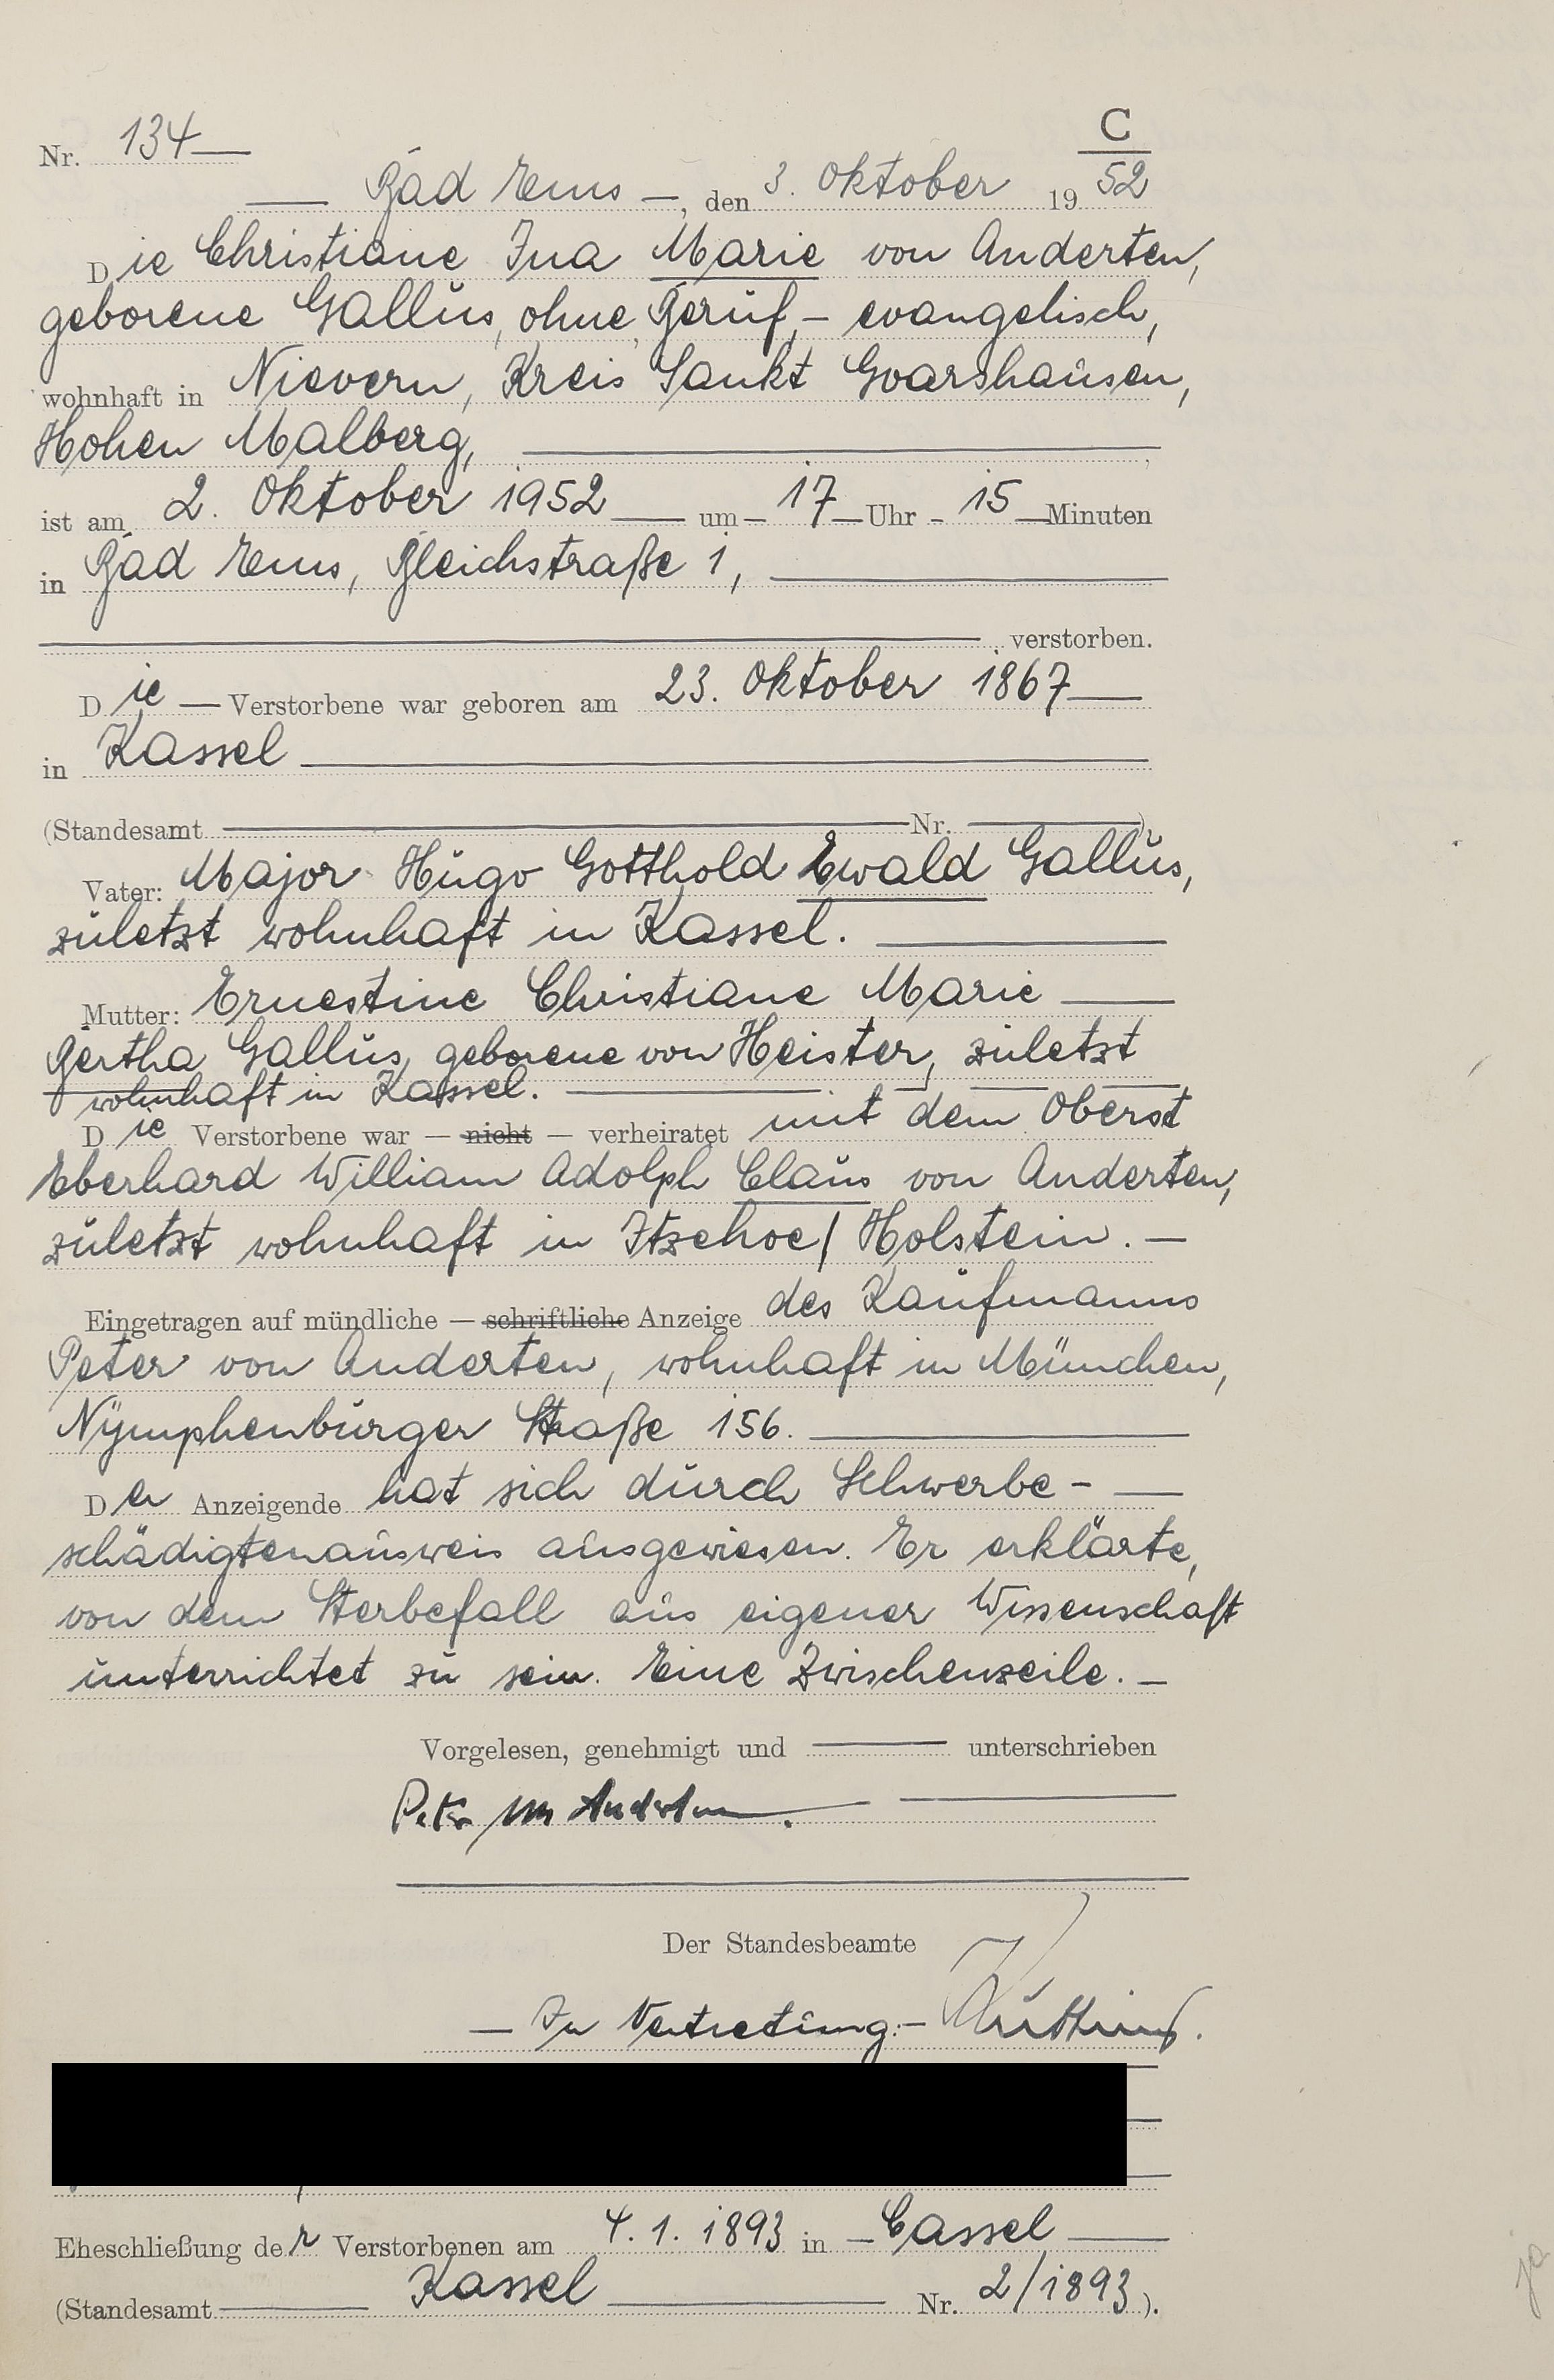 C
Nr. 134
Bad Ems, den 3. Oktober 1952
Die Christiane Ina Marie von Anderten,
geborene Gallus, ohne Beruf, – evangelisch,
wohnhaft in Nievern, Kreis Sankt Goarshausen,
Hohen Malberg,
ist am 2. Oktober 1952 um 17 Uhr 15 Minuten
in Bad Ems, Bleichstraße 1,
verstorben.
Die Verstorbene war geboren am 23. Oktober 1867
in Kassel
(Standesamt Nr. )
Vater: Major Hugo Gotthold Ewald Gallus,
zuletzt wohnhaft in Kassel.
Mutter: Ernestine Christiane Marie
Bertha Gallus, geborene von Heister, zuletzt
wohnhaft in Kassel.
Die Verstorbene war — nicht — verheiratet mit dem Oberst
Eberhard William Adolph Claus von Anderten,
zuletzt wohnhaft in Itzehoe/Holstein. –
Eingetragen auf mündliche — schriftliche Anzeige des Kaufmanns
Peter von Anderten, wohnhaft in München,
Nymphenburger Straße 156.
Der Anzeigende hat sich durch Schwerbe-
schädigtenausweis ausgewiesen. Er erklärte,
von dem Sterbefall aus eigener Wissenschaft
unterrichtet zu sein. Eine Zwischenzeile. –
Vorgelesen, genehmigt und unterschrieben
Peter von Anderten.
Der Standesbeamte
– In Vertretung: –
Eheschließung der Verstorbenen am 4. 1. 1893 in – Cassel
(Standesamt Kassel Nr. 2/1893).
ja